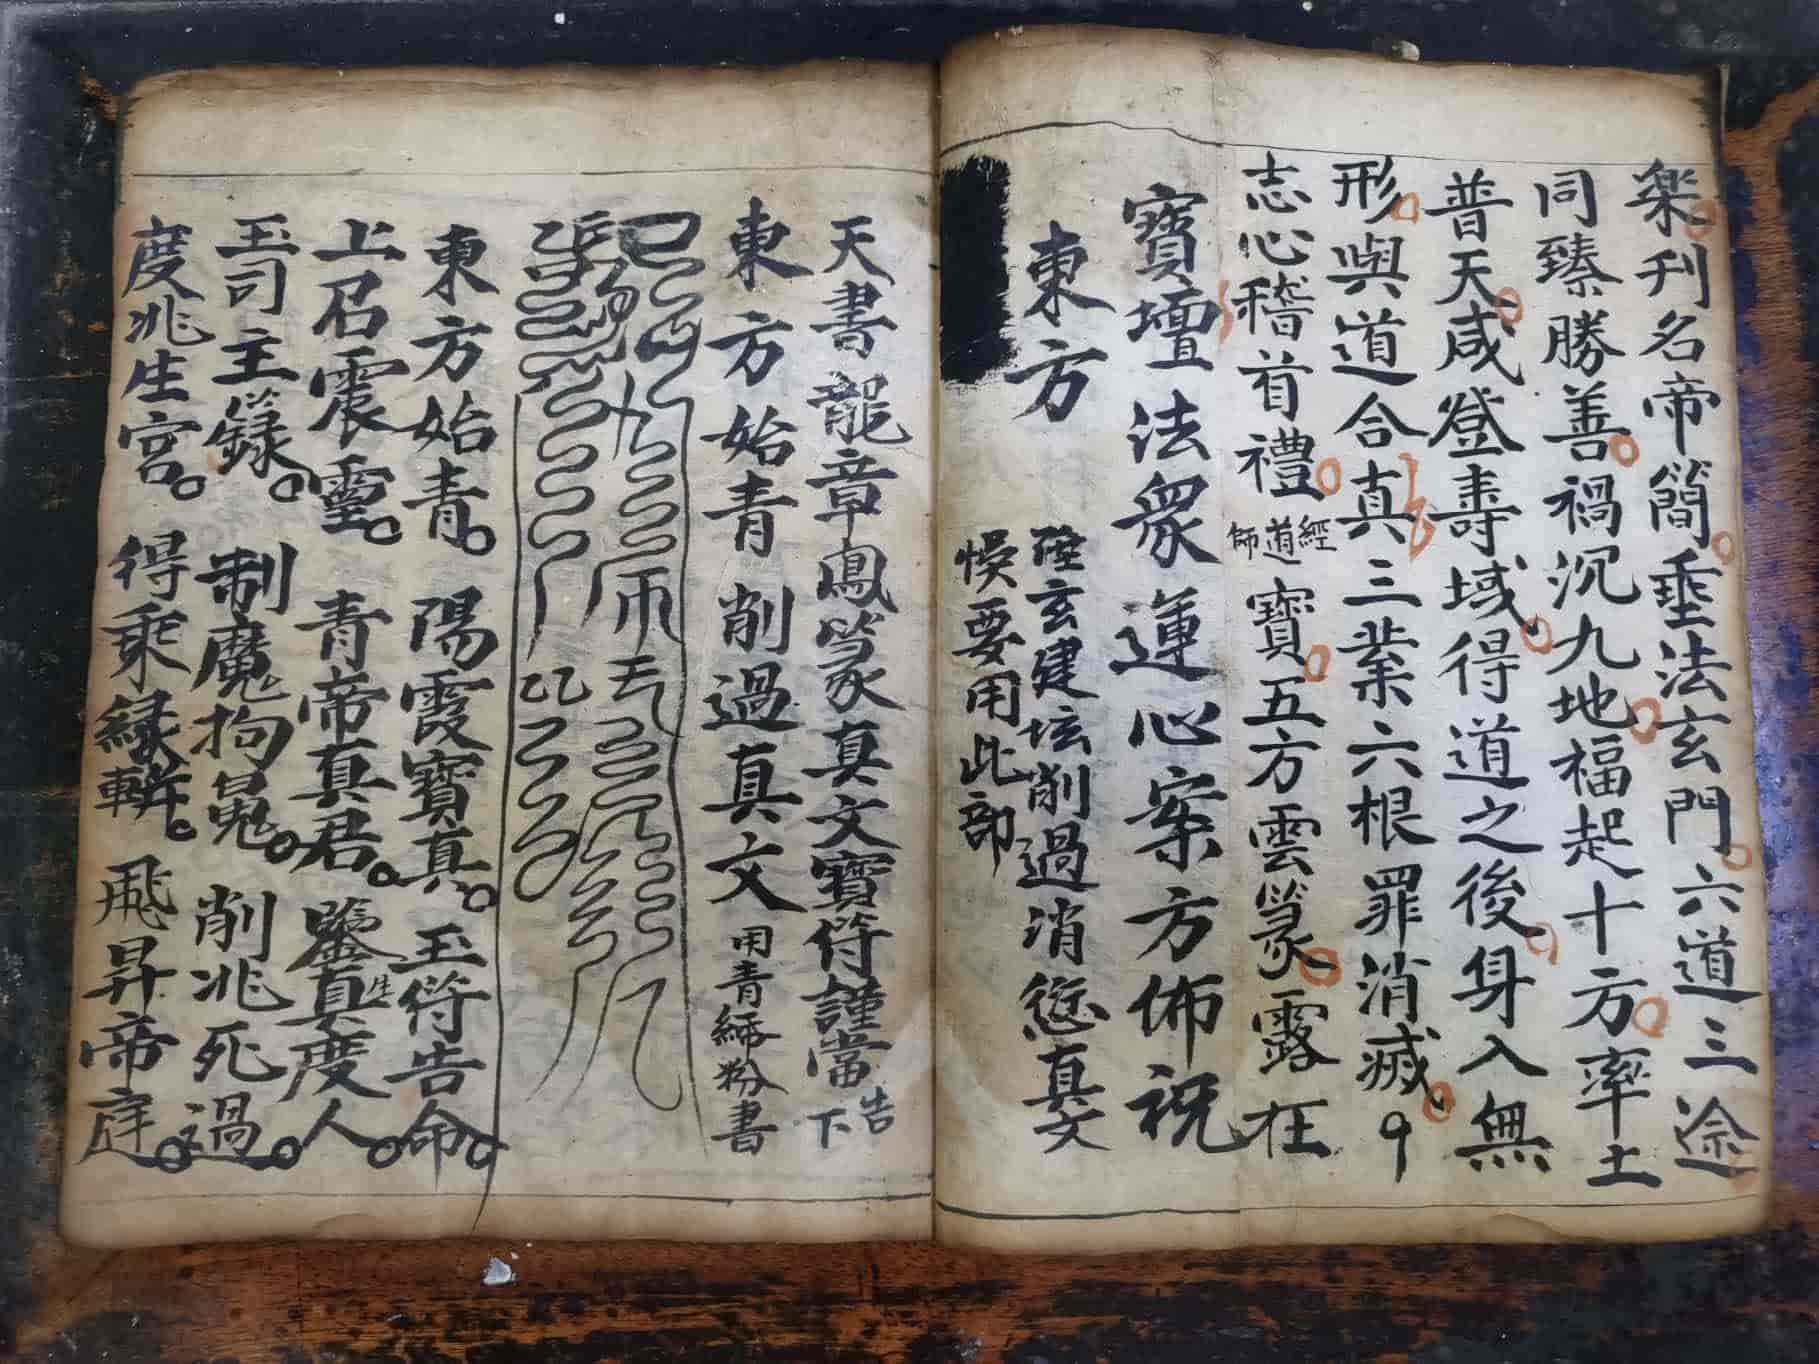 楽刋名帝簡垂法玄門六道三途
同臻勝善禍沉九地福起十方率土
普天咸登壽域得道之後身入無
形與道合真三業六根罪消滅
志心稽首禮經道師寶五方雲篆露在
寶壇法衆運心案方佈祝
東方
玄建坛削過消愆真文
悞要用此部
天書龍章鳳篆真文寶符謹當告下
東方始青削過真文用青綵粉書
東方始青陽霞寶真玉符告命
上召震靈青帝真君鑒真度人
生
玉司主籙制魔拘鬼削兆死過
度兆生宮得乘緑輧飛昇帝庭